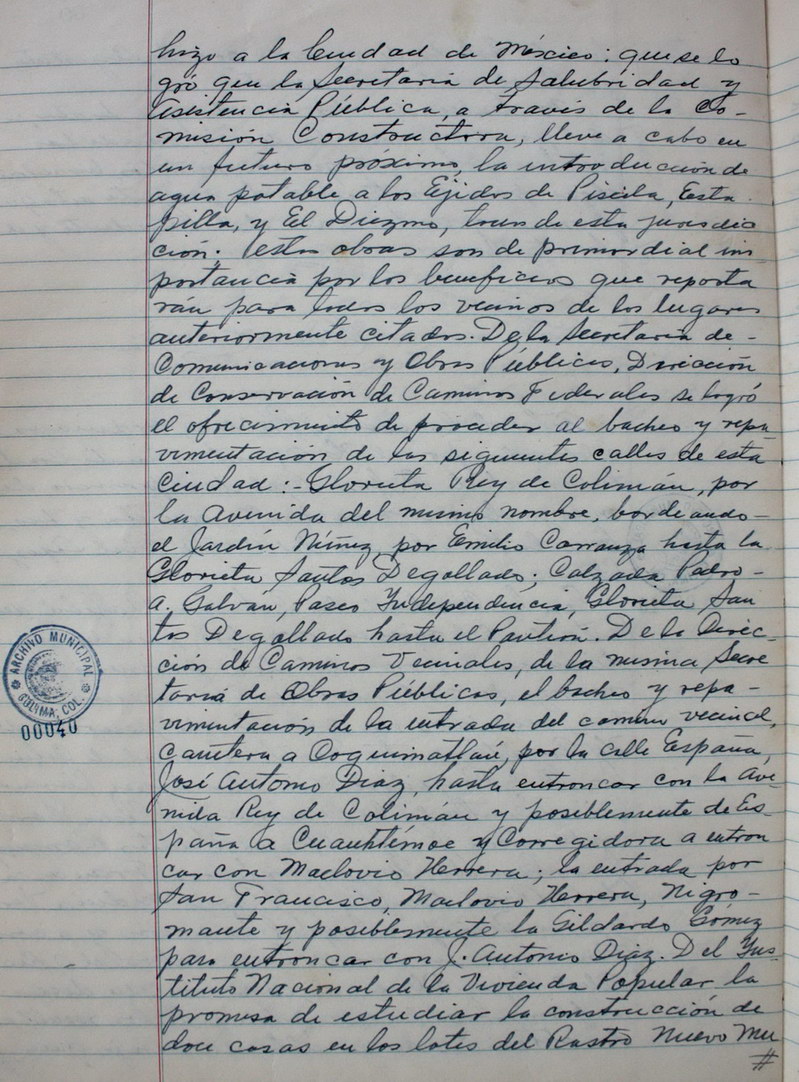 hizo a la Ciudad de México: que se lo
gró que la Secretaría de Salubridad y
Asistencia Pública, a través de la Co-
misión Constructora, lleve a cabo en
un futuro próximo, la introducción de
agua potable a los Ejidos de Piscila, Testa
pilla, y El Diezmo, todos de esta jurisdic
ción. Estas obras son de primordial im
portancia por los beneficios que reporta
rán para todos los vecinos de los lugares
anteriormente citados. De la Secretaría de-
Comunicaciones y Obras Públicas, Dirección
de Conservación de Caminos Federales se logró
el ofrecimiento de proceder al bacheo y repa
vimentación de las siguientes calles de esta
Ciudad:- Glorieta Rey de Colimán, por
la Avenida del mismo nombre, bordeando-
el Jardín Núñez, por Emilio Carranza hasta la
Glorieta Santos Degollado; Calzada Pedro-
A. Galván, Paseo Independencia, Glorieta San
tos Degollado hasta el Panteón. De la Direc-
ción de Caminos Vecinales, de la misma Secre
taría de Obras Públicas, el bacheo y repa-
vimentación de la entrada del camino vecinal,
carretera a Coquimatlán, por la calle España,
José Antonio Díaz, hasta entroncar con la Ave
nida Rey de Colimán y posiblemente de Es-
paña a Cuauhtémoc y Corregidora a entron
car con Maclovio Herrera; la entrada por
San Francisco, Maclovio Herrera, Nigro-
mante y posiblemente la Gildardo Gómez
para entroncar con J. Antonio Díaz. Del Ins-
tituto Nacional de la Vivienda Popular la
promesa de estudiar la construcción de
doce casas en los lotes del Rastro Nuevo Mu
#
ARCHIVO MUNICIPAL
COLIMA, COL.
00040